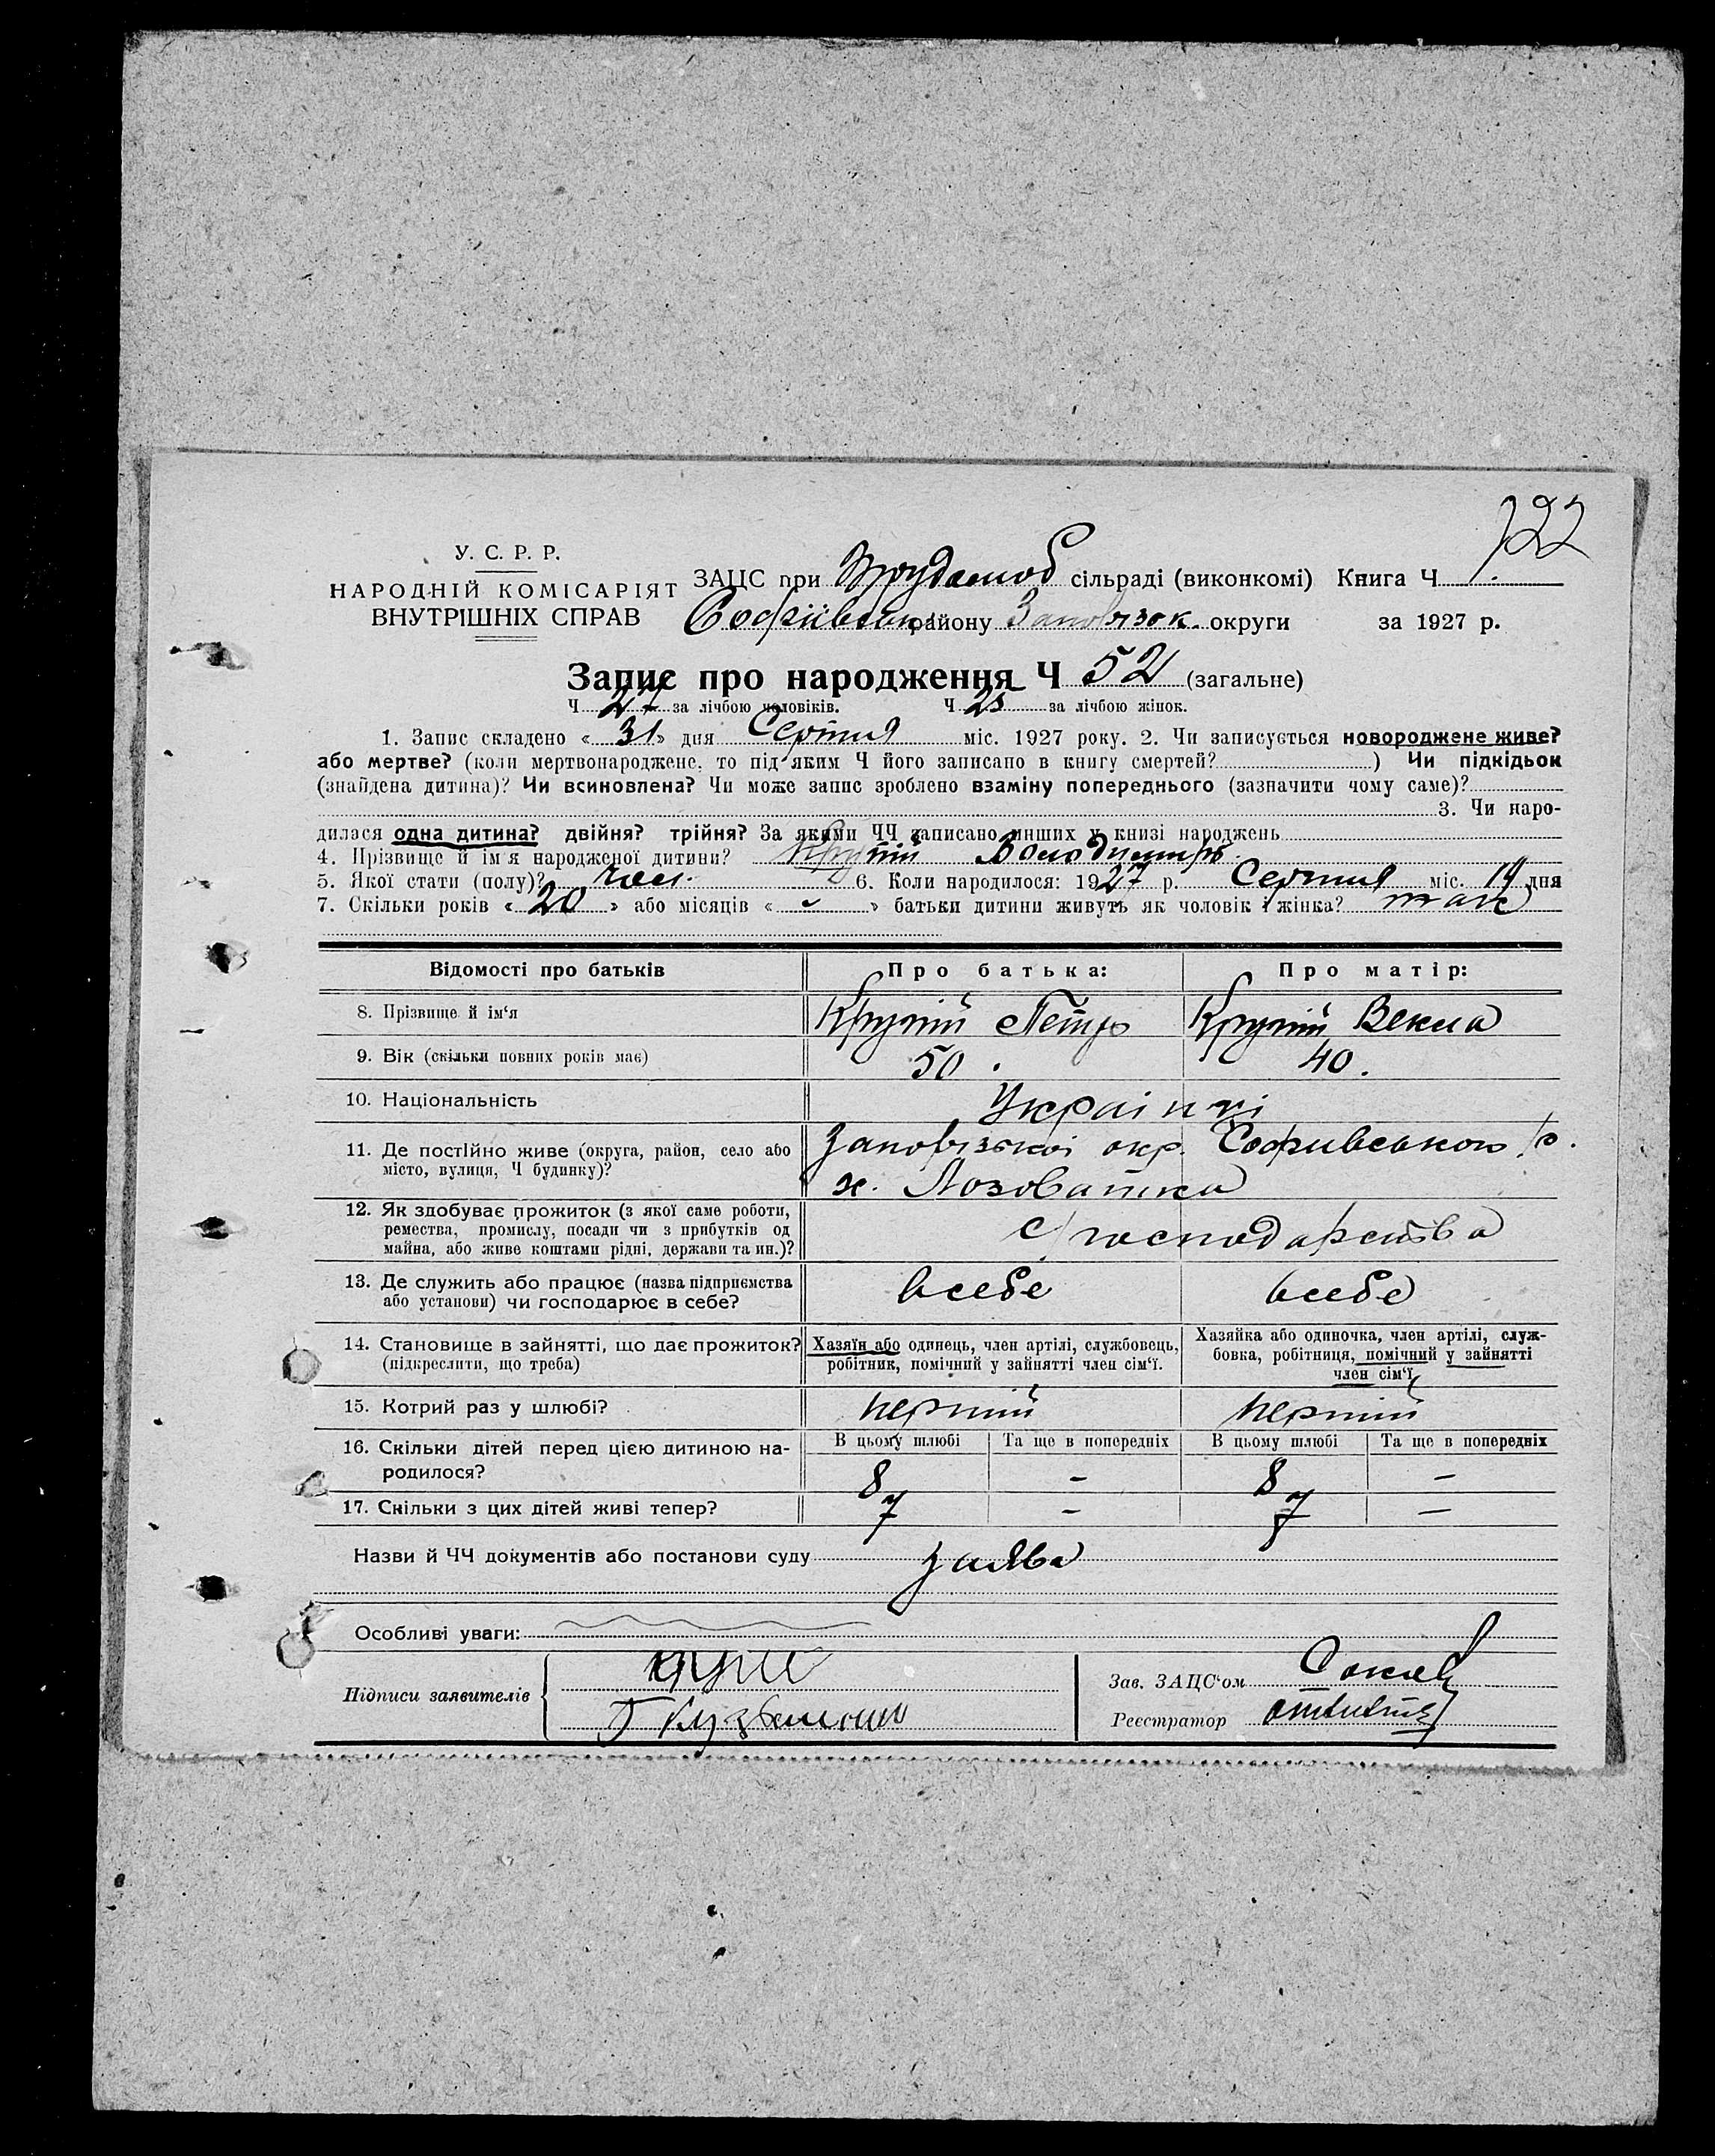 122
У. С. Р. Р.
НАРОДНІЙ КОМІСАРІЯТ
ВНУТРІШНІХ СПРАВ
ЗАЦС при сільраді (виконкомі) Книга Ч 1.
Софіївськ району Запорізьк. округи за 1927 р.
Запис про народження Ч 52 (загальне)
Ч 27 за лічбою чоловіків. Ч 25 за лічбою жінок.
1. Запис складено « 31 » дня Серпня міс. 1927 року. 2. Чи записується новороджене живе?
або мертве? (коли мертвонароджене, то під яким Ч його записано в книгу смертей? ) Чи підкідьок
(знайдена дитина)? Чи всиновлена? Чи може запис зроблено взаміну попереднього (зазначити чому саме)?
3. Чи наро-
дилася одна дитина? двійня? трійня? За якими ЧЧ записано инших у книзі народжень
4. Прізвище й ім'я народженої дитини? Володимиръ
5. Якої стати (полу)? чол. 6. Коли народилося: 1927 р. Серпня міс. 19 дня
7. Скільки років « 20 » або місяців « - » батьки дитини живуть як чоловік і жінка? так
Відомості про батьків Про батька: Про матір:
8. Прізвище й ім'я Петро Векла
9. Вік (скільки повних років має) 50. 40.
10. Національність Українці
11. Де постійно живе (округа, район, село або
місто, вулиця, Ч будинку)?
Запорізької окр. Софиівського р.
х. Лозоватка
12. Як здобуває прожиток (з якої саме роботи,
ремества, промислу, посади чи з прибутків од
майна, або живе коштами рідні, держави та ин.)?
с/господарства
13. Де служить або працює (назва підприємства
або установи) чи господарює в себе?
всебе всебе
14. Становище в зайнятті, що дає прожиток?
(підкреслити, що треба)
Хазяїн або одинець, член артілі, службовець,
робітник, помічний у зайнятті член сім'ї.
Хазяйка або одиночка, член артілі, служ-
бовка, робітниця, помічний у зайнятті
член сім'ї
15. Котрий раз у шлюбі? перший перший
16. Скільки дітей перед цією дитиною на-
родилося?
В цьому шлюбі Та ще в попередніх В цьому шлюбі Та ще в попередніх
8 - 8 -
17. Скільки з цих дітей живі тепер? 7 - 7 -
Назви й ЧЧ документів або постанови суду заява
Особливі уваги:
Підписи заявителів
Зав. ЗАЦС'ом
Реєстратор